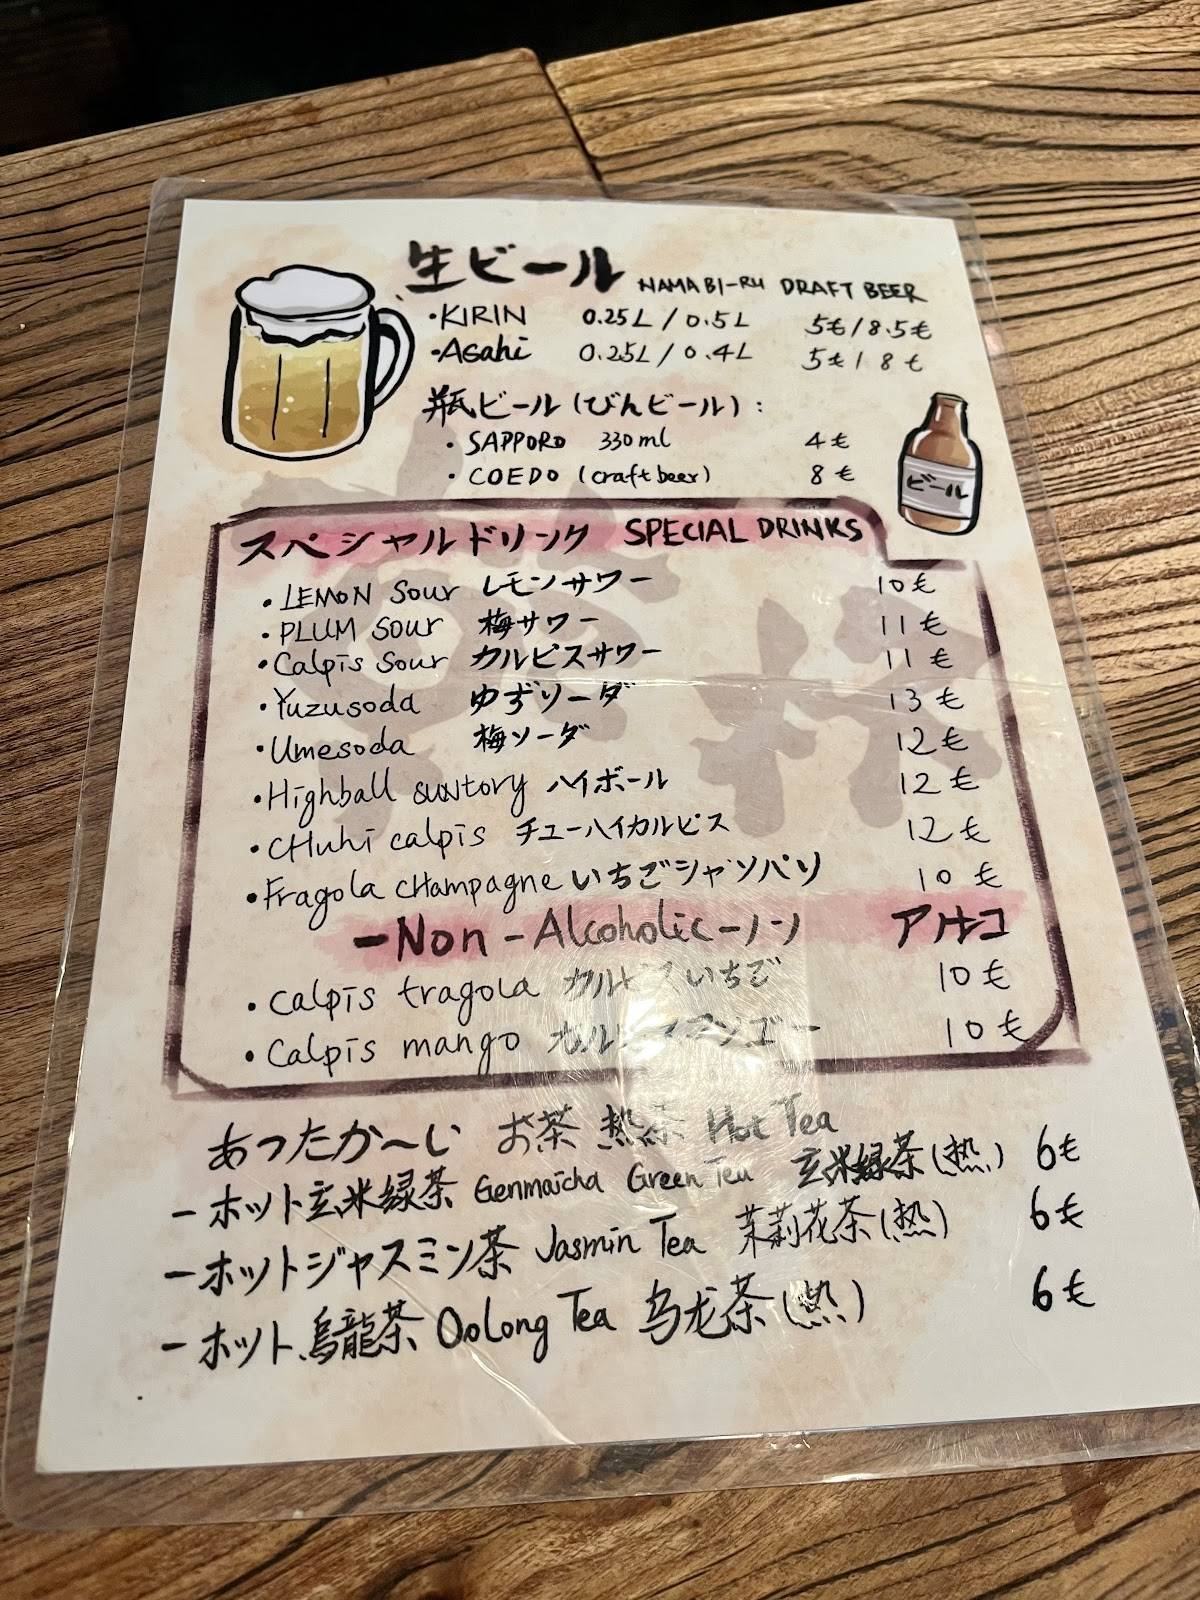 生ビール NAMA BI-RU DRAFT BEER
・KIRIN 0.25L / 0.5L 5€ / 8.5€
・Asahi 0.25L / 0.4L 5€ / 8€
瓶ビール (びんビール) :
・SAPPORO 330ml 4€
・COEDO (craft beer) 8€
ビール
スペシャルドリンク SPECIAL DRINKS
・LEMON Sour レモンサワー 10€
・PLUM Sour 梅サワー 11€
・Calpis Sour カルピスサワー 11€
・Yuzusoda ゆずソーダ 13€
・Umesoda 梅ソーダ 12€
・Highball suntory ハイボール 12€
・CHuhi calpis チューハイカルピス 12€
・Fragola CHampagne いちごシャンパン 10€
-Non-Alcoholic-ノン アルコ
・Calpis fragola カルピスいちご 10€
・Calpis mango カルピスマンゴー 10€
あったか〜い お茶 热茶 Hot Tea
-ホット玄米緑茶 Genmaicha Green Tea 玄米绿茶(热) 6€
-ホットジャスミン茶 Jasmin Tea 茉莉花茶(热) 6€
-ホット烏龍茶 Oolong Tea 乌龙茶(热) 6€